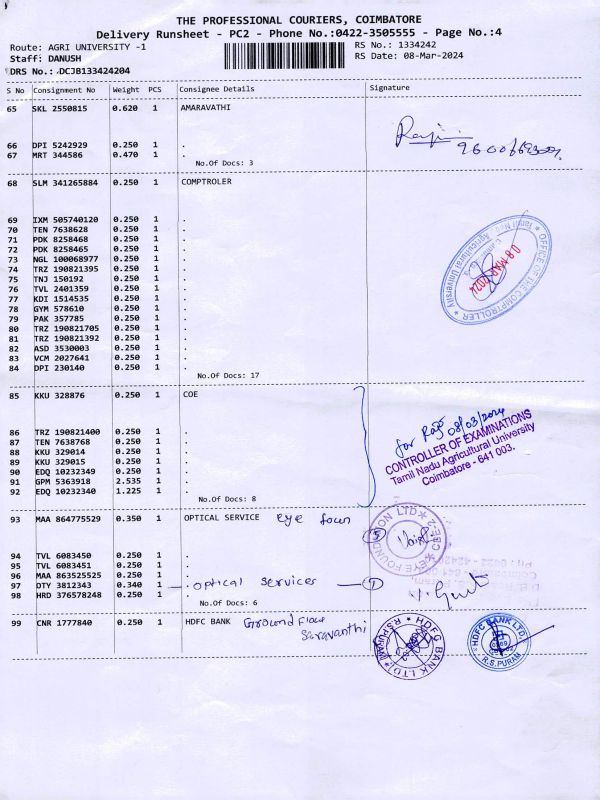 THE PROFESSIONAL COURIERS, COIMBATORE
Delivery Runsheet - PC2 - Phone No.:0422-3505555 - Page No.:4
Route: AGRI UNIVERSITY -1
RS No.: 1334242
Staff: DANUSH
RS Date: 08-Mar-2024
DRS No.: DCJB133424204
S No Consignment No Weight PCS Consignee Details Signature
65 SKL 2550815 0.620 1 AMARAVATHI
66 DPI 5242929 0.250 1 .
67 MRT 344586 0.470 1 .
No.Of Docs: 3
68 SLM 341265884 0.250 1 COMPTROLER
69 IXM 505740120 0.250 1 .
70 TEN 7638628 0.250 1 .
71 PDK 8258468 0.250 1 .
72 PDK 8258465 0.250 1 .
73 NGL 100068977 0.250 1 .
74 TRZ 190821395 0.250 1 .
75 TNJ 150192 0.250 1 .
76 TVL 2401359 0.250 1 .
77 KDI 1514535 0.250 1 .
78 GYM 578610 0.250 1 .
79 PAK 357785 0.250 1 .
80 TRZ 190821705 0.250 1 .
81 TRZ 190821392 0.250 1 .
82 ASD 3530003 0.250 1 .
83 VCM 2027641 0.250 1 .
84 DPI 230140 0.250 1 .
No.Of Docs: 17
OFFICE OF THE COMPTROLLER
Tamil Nadu Agricultural University
08 MAR 2024
85 KKU 328876 0.250 1 COE
86 TRZ 190821400 0.250 1 .
87 TEN 7638768 0.250 1 .
88 KKU 329014 0.250 1 .
89 KKU 329015 0.250 1 .
90 EDQ 10232349 0.250 1 .
91 GPM 5363918 2.535 1 .
92 EDQ 10232340 1.225 1 .
No.Of Docs: 8
for 08/03/2024
CONTROLLER OF EXAMINATIONS
Tamil Nadu Agricultural University
Coimbatore - 641 003.
93 MAA 864775529 0.350 1 OPTICAL SERVICE eye foun
5
EYE FOUNDATION LTD CBE-2
94 TVL 6083450 0.250 1 .
95 TVL 6083451 0.250 1 .
96 MAA 863525525 0.250 1 .
97 DTY 3812343 0.340 1 . optical services 1
98 HRD 376578248 0.250 1 .
No.Of Docs: 6
99 CNR 1777840 0.250 1 HDFC BANK Ground Floor
Saravanthi
HDFC BANK LTD R.S.PURAM
HDFC BANK LTD. R.S.PURAM